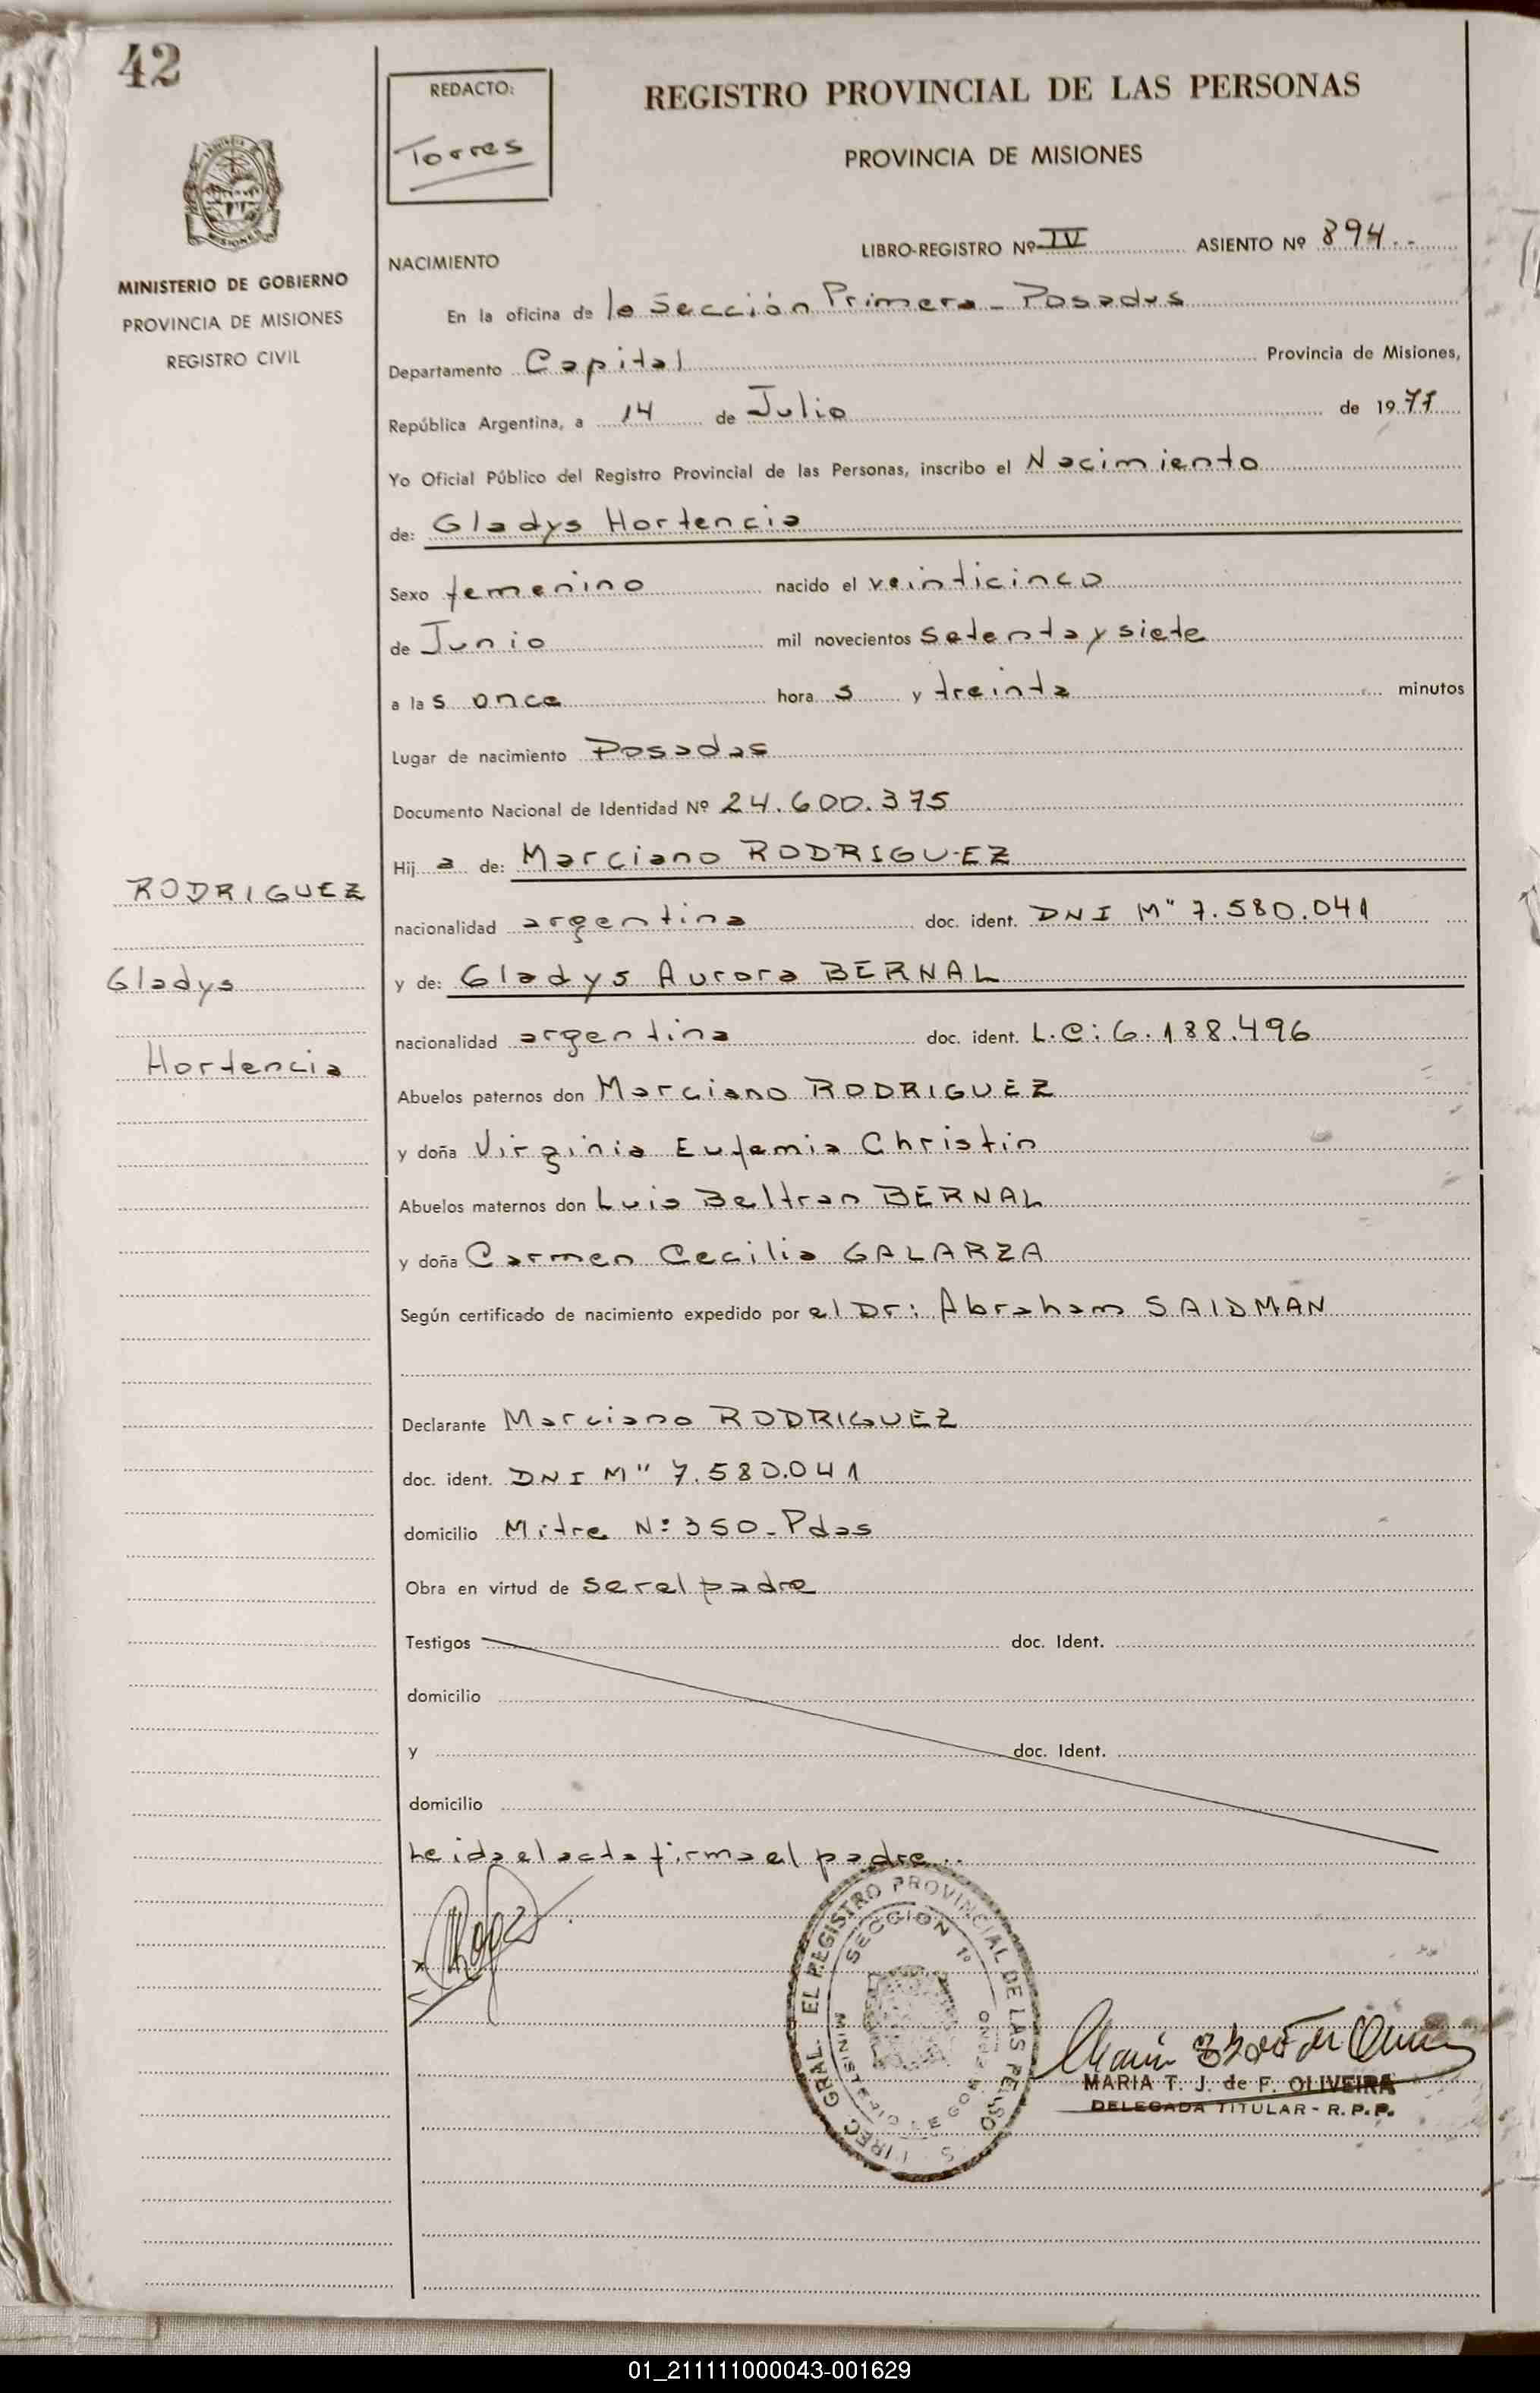 42
REDACTO:
Torres
REGISTRO PROVINCIAL DE LAS PERSONAS
PROVINCIA DE MISIONES
MISIONES
MINISTERIO DE GOBIERNO
PROVINCIA DE MISIONES
REGISTRO CIVIL
NACIMIENTO
LIBRO-REGISTRO Nº IV ASIENTO Nº 894.-
En la oficina de la Sección Primera - Posadas
Departamento Capital Provincia de Misiones,
República Argentina, a 14 de Julio de 1977
Yo Oficial Público del Registro Provincial de las Personas, inscribo el Nacimiento
de: Gladys Hortencia
Sexo femenino nacido el veinticinco
de Junio mil novecientos setenta y siete
a las once horas y treinta minutos
Lugar de nacimiento Posadas
Documento Nacional de Identidad Nº 24.600.375
Hija de: Marciano RODRIGUEZ
RODRIGUEZ
nacionalidad argentina doc. ident. DNI M" 7.580.041
Gladys
y de: Gladys Aurora BERNAL
nacionalidad argentina doc. ident. L.C: 6.188.496
Hortencia
Abuelos paternos don Marciano RODRIGUEZ
y doña Virginia Eufemia Christin
Abuelos maternos don Luis Beltran BERNAL
y doña Carmen Cecilia GALARZA
Según certificado de nacimiento expedido por el Dr: Abraham SAIDMAN
Declarante Marciano RODRIGUEZ
doc. ident. DNI M" 7.580.041
domicilio Mitre N: 350 - Pdas
Obra en virtud de ser el padre
Testigos doc. Ident.
domicilio
y doc. Ident.
domicilio
Leida el acta firma el padre..
GRAL. EL REGISTRO PROVINCIAL DE LAS
SECCION 1º
MARIA T. J. de F. OLIVEIRA
DELEGADA TITULAR - R.P.P.
01_211111000043-001629